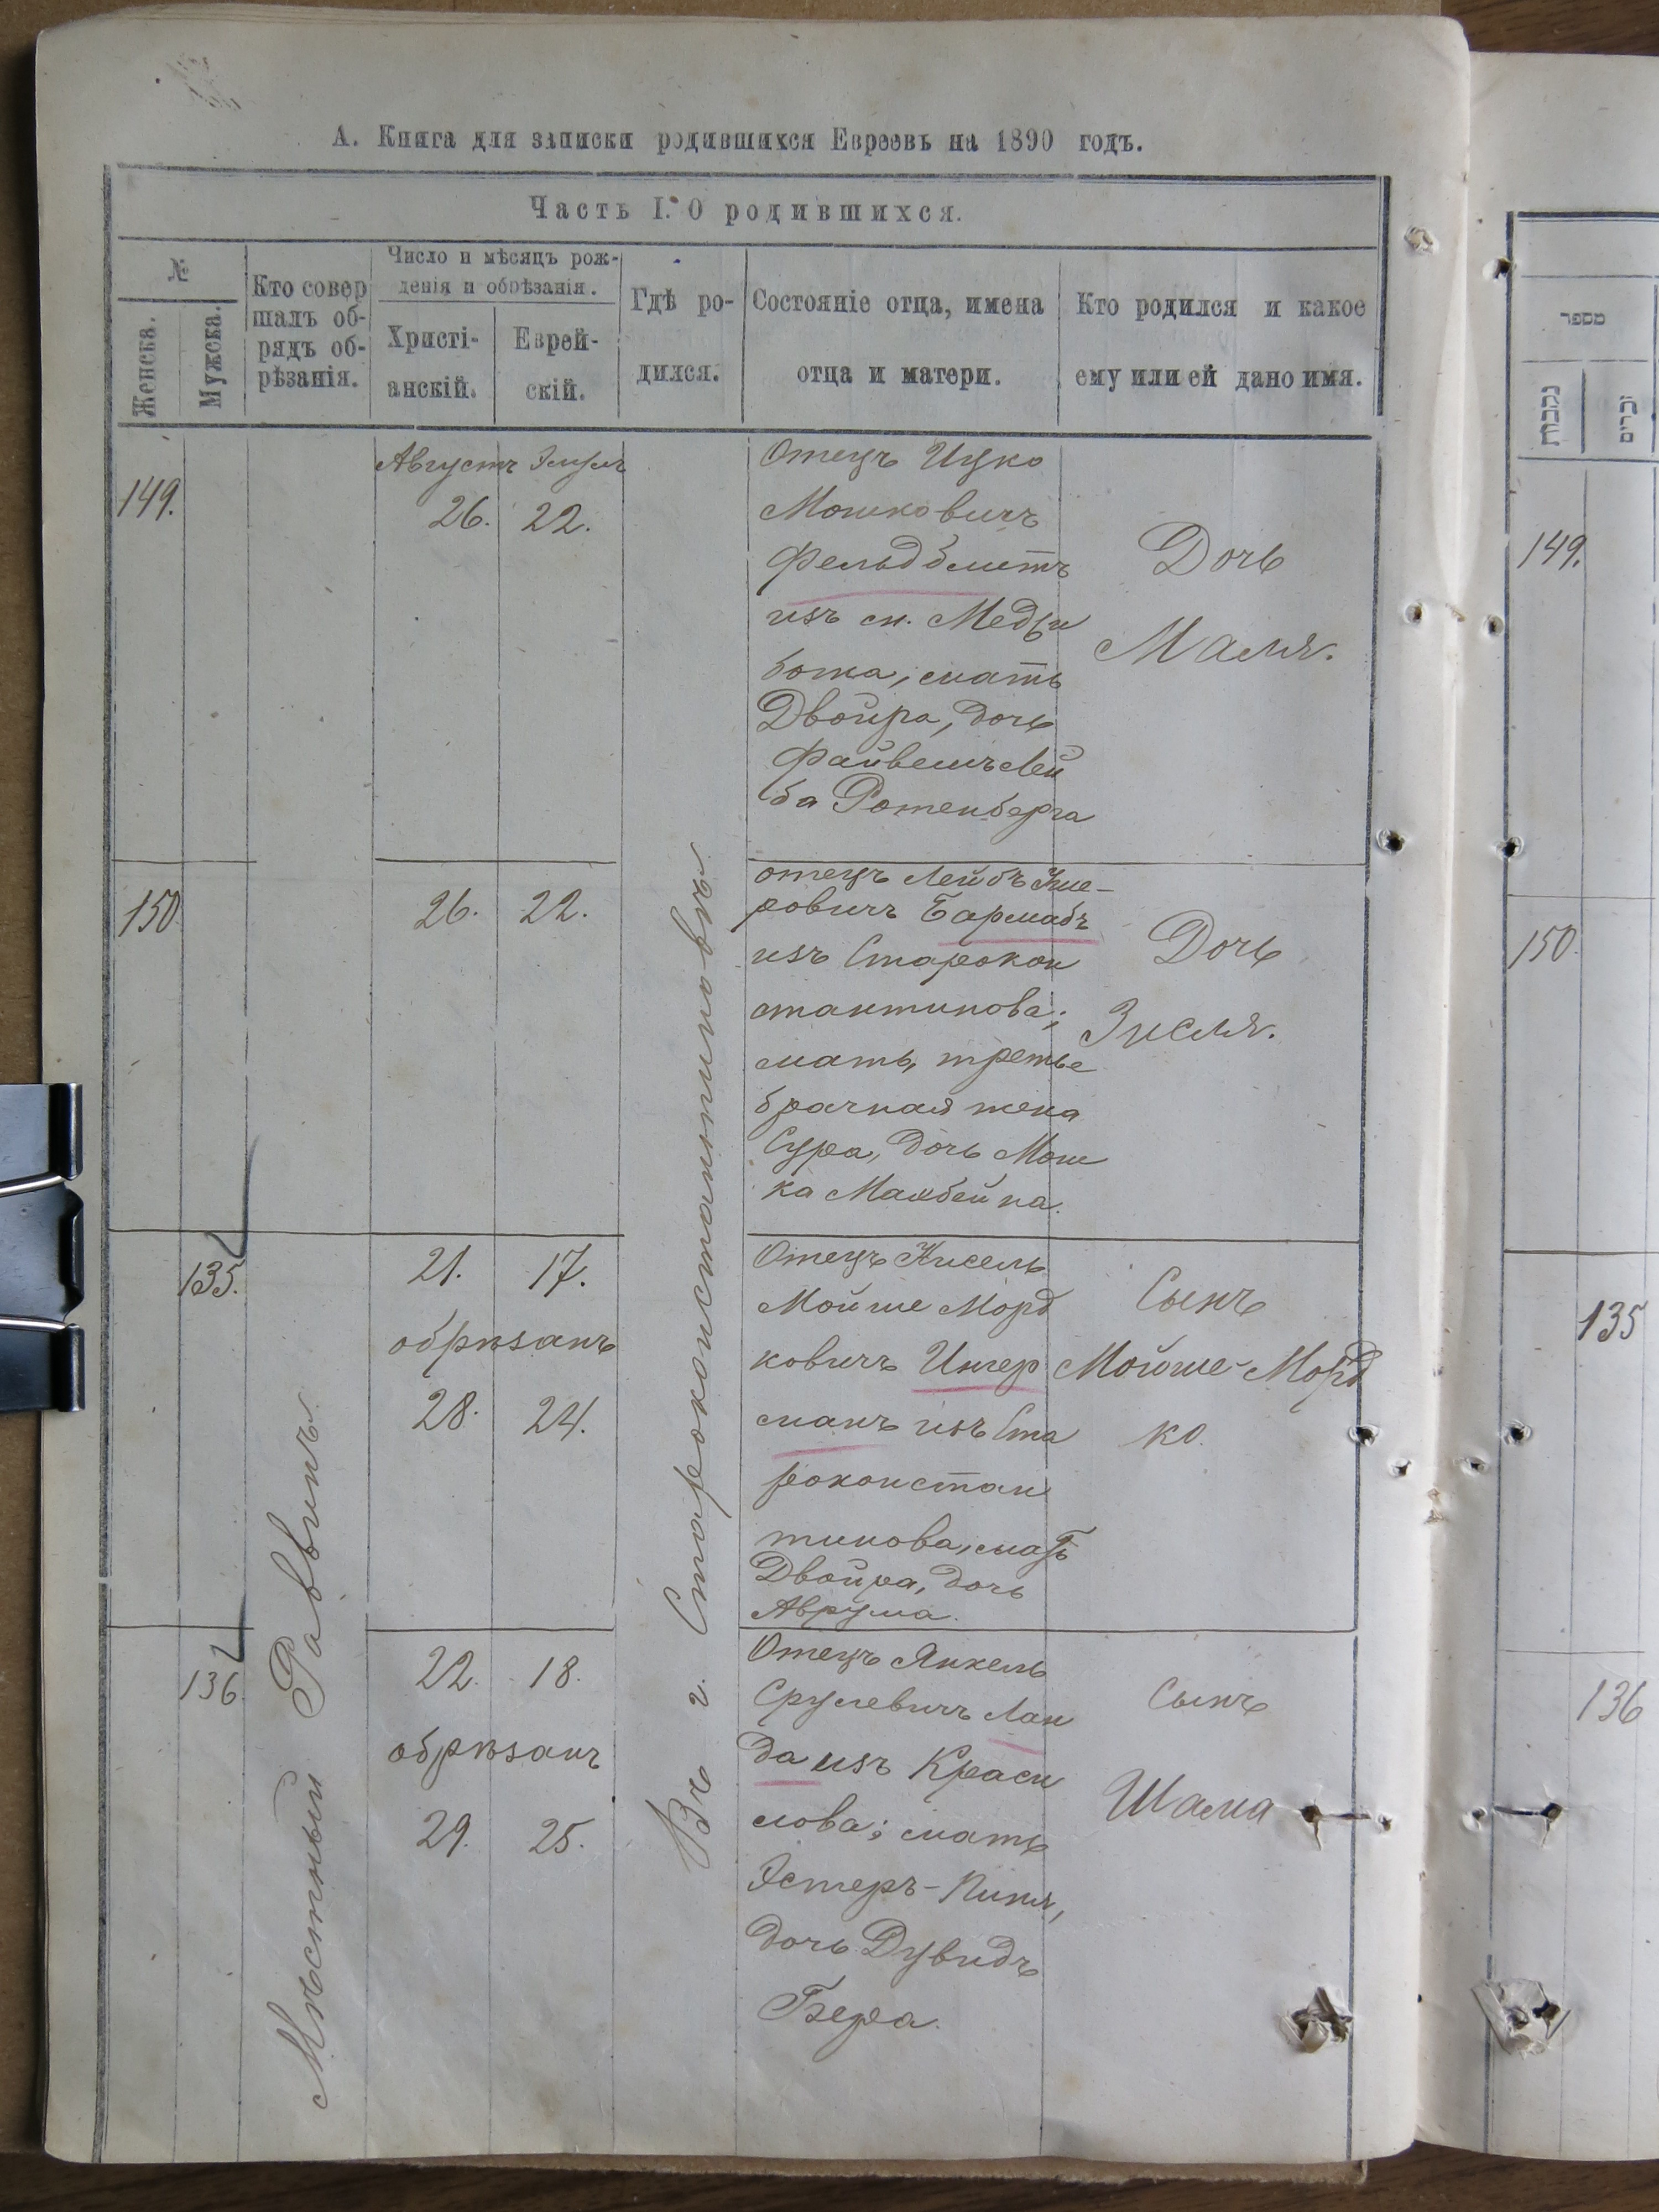 А. Книга для записки родившихся Евреевъ на 1890 годъ.
Часть I. О родившихся.
№
Женска.
Мужска.
Кто совер
шалъ об-
рядъ об-
рѣзанія.
Число и мѣсяцъ рож-
денія и обрѣзанія.
Христі-
анскій.
Еврей-
скій.
Гдѣ ро-
дился.
Состояніе отца, имена
отца и матери.
Кто родился и какое
ему или ей дано имя.
Мѣстный Раввинъ
Въ г. Староконстантиновѣ
149.
Августъ Элулъ
26. 22.
Отецъ Ицко
Мошковичъ
Фельдблитъ
изъ м. Меджи
божа, мать
Двойра, дочь
Файвешъ Лей
ба Ротенберга
Дочь
Маля.
150
26. 22.
отецъ Лейбъ
ровичъ Бармабъ
изъ Старокон
стантинова;
мать, третье
брачная жена
Сура, дочь Мош
ка
Дочь
Зисля.
135.
21. 17.
обрѣзанъ
28. 24.
Отецъ Кисель
Мойше Морд
ковичъ Ингер
манъ изъ Ста
роконстан
тинова, мать
Двойра, дочь
Аврума.
Сынъ
Мойше-Морд
ко.
136.
22. 18.
обрѣзанъ
29. 25.
Отецъ Янкель
Срулевичъ Лан
да изъ Краси
лова; мать
Эстеръ-
дочь Дувидъ
Бера.
Сынъ
Шама
מספר
נקבות
זכרים
149.
150.
135
136